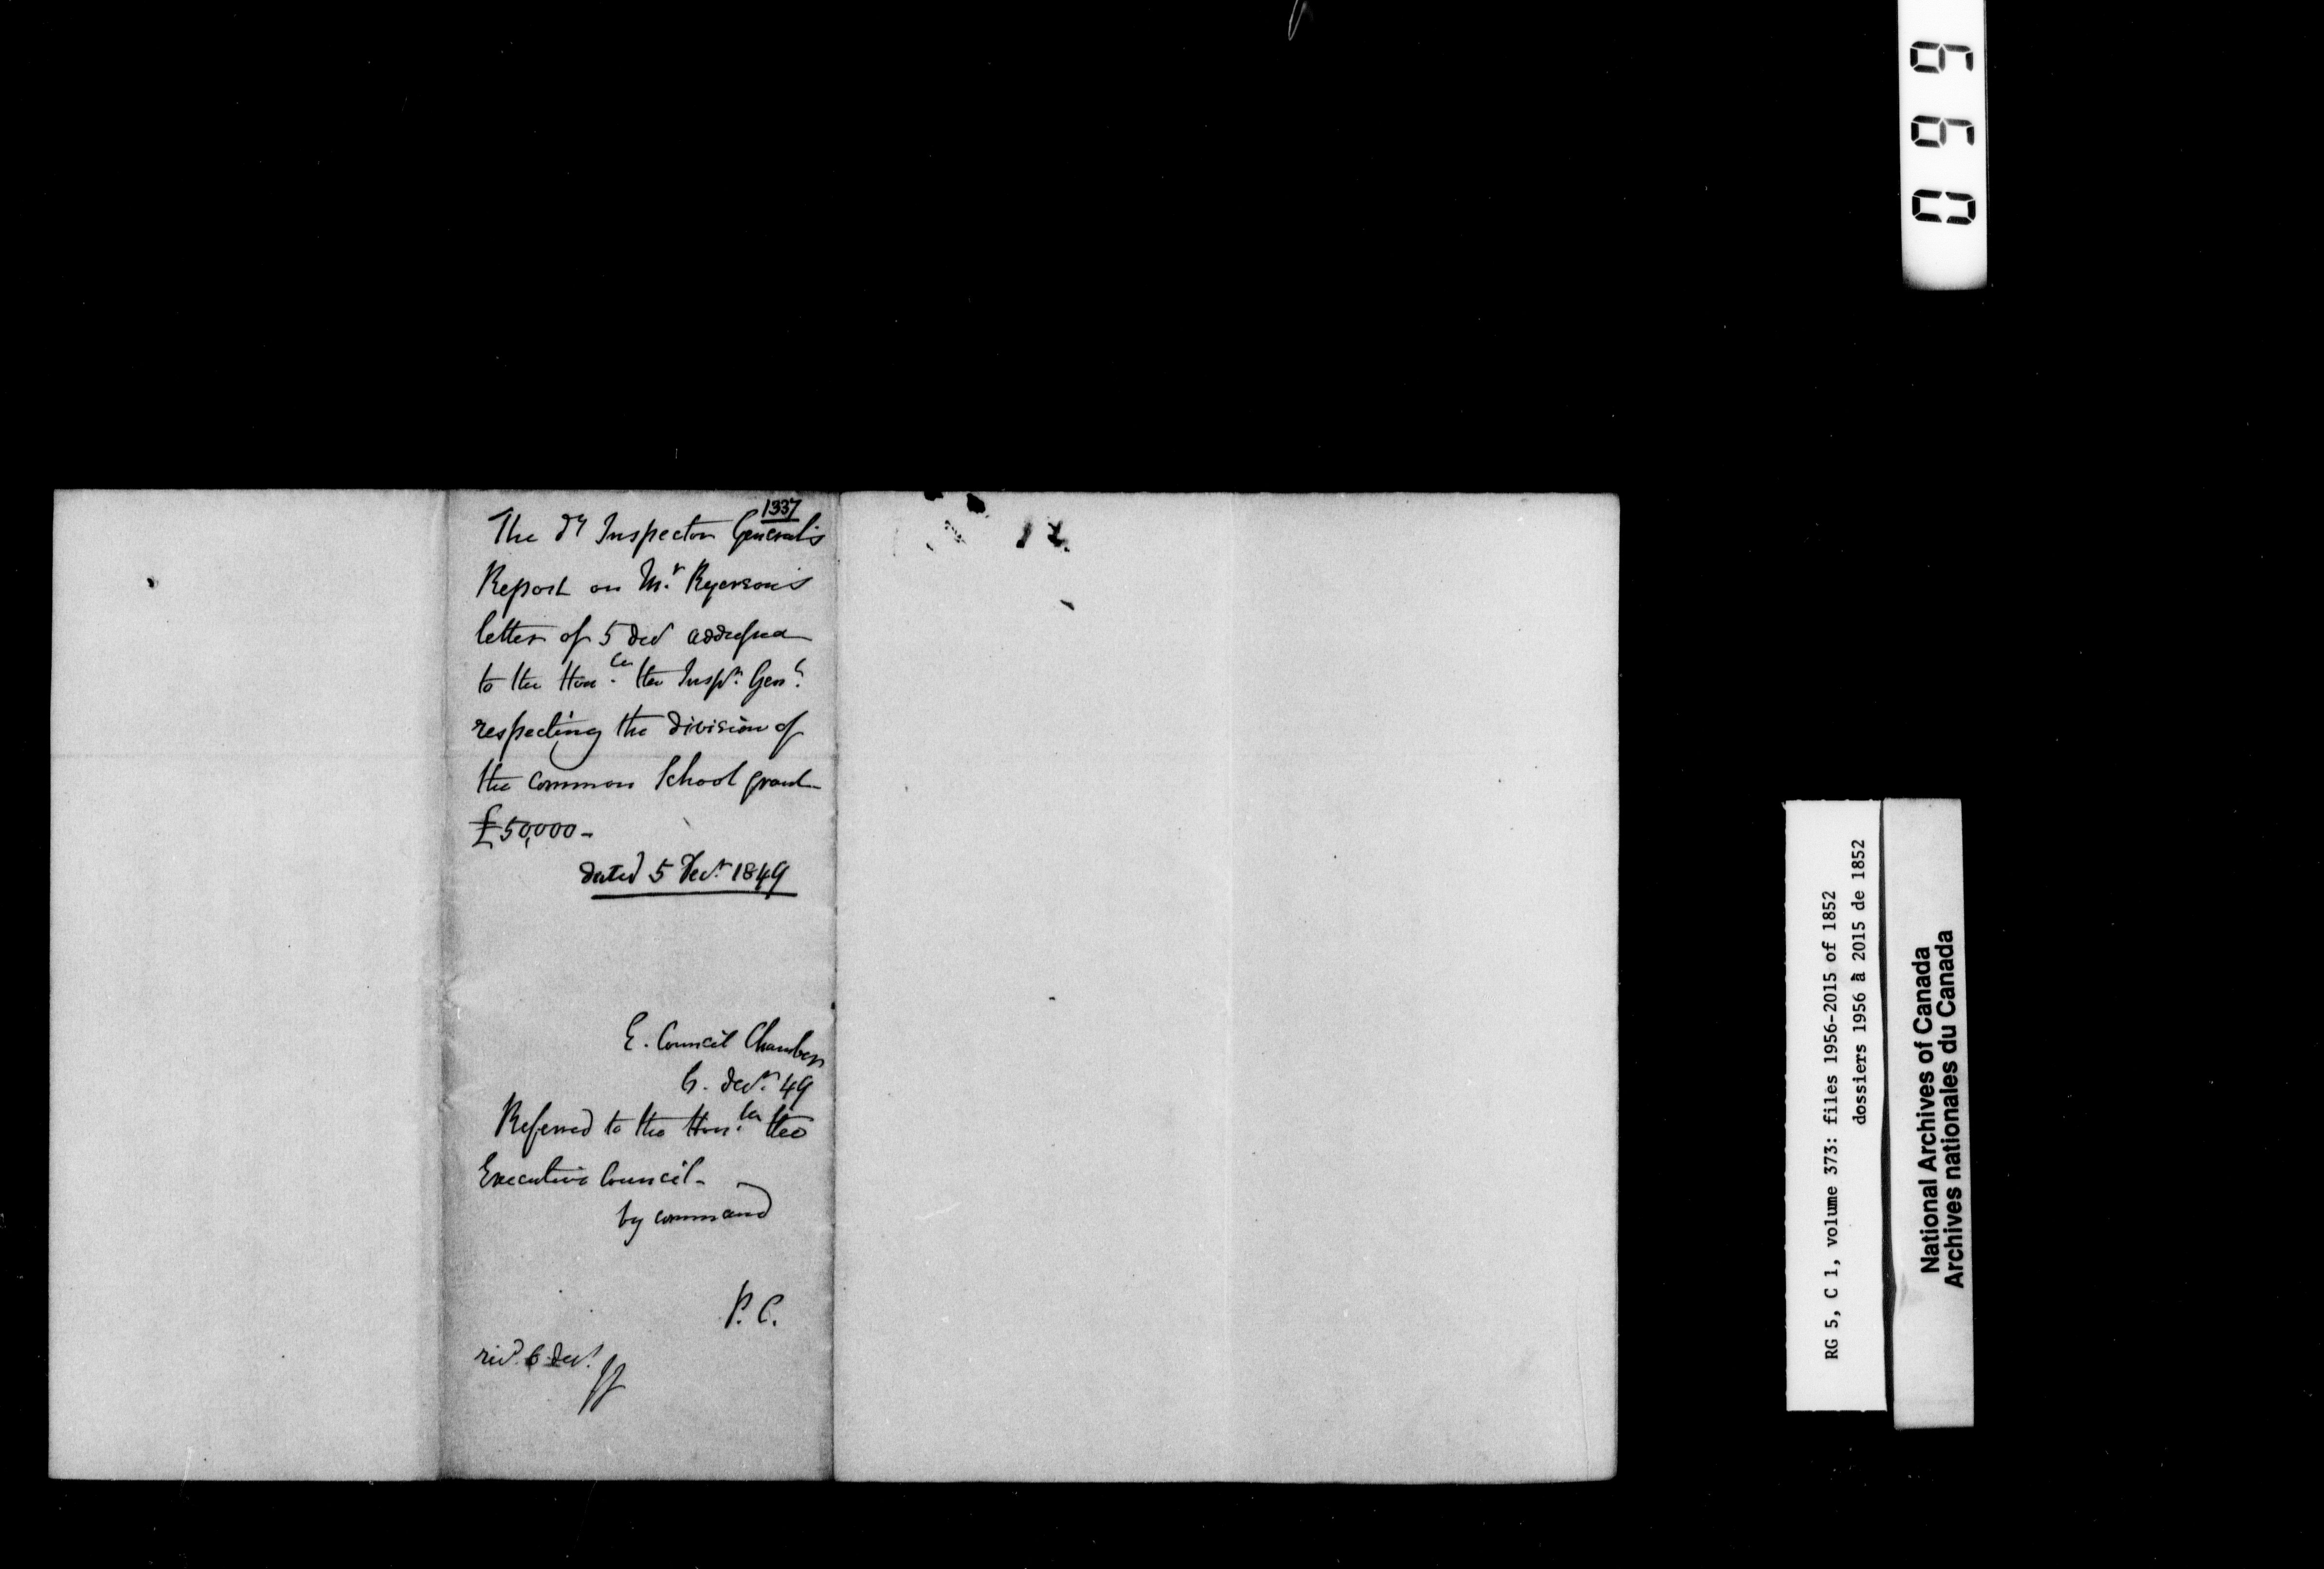 1337
The Dy Inspector General's
Report on Mr. Ryerson's
letter of 5 Decr addressed
to the Honble the Inspr. Genl.
respecting the division of
the Common School grant
£50,000-
dated 5 Decr. 1849
E. Council Chamber
6. Decr. 49
Referred to the Honble the
Executive Council-
by command
P. C.
recd. 6 Decr.
660
RG 5, C 1, volume 373: files 1956-2015 of 1852
dossiers 1956 à 2015 de 1852
National Archives of Canada
Archives nationales du Canada